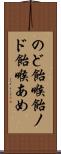 のど飴喉飴ノ
ド飴喉あめ